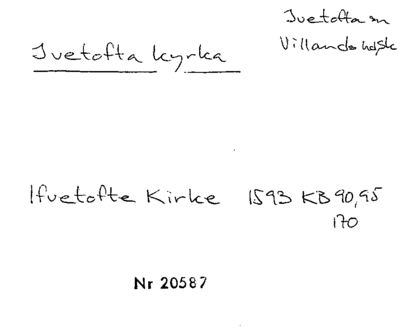 Ivetofta sn
Villands hd, Sk
Ivetofta kyrka
Ifuetofte Kirke 1593 KB 90, 95
170
Nr 20587